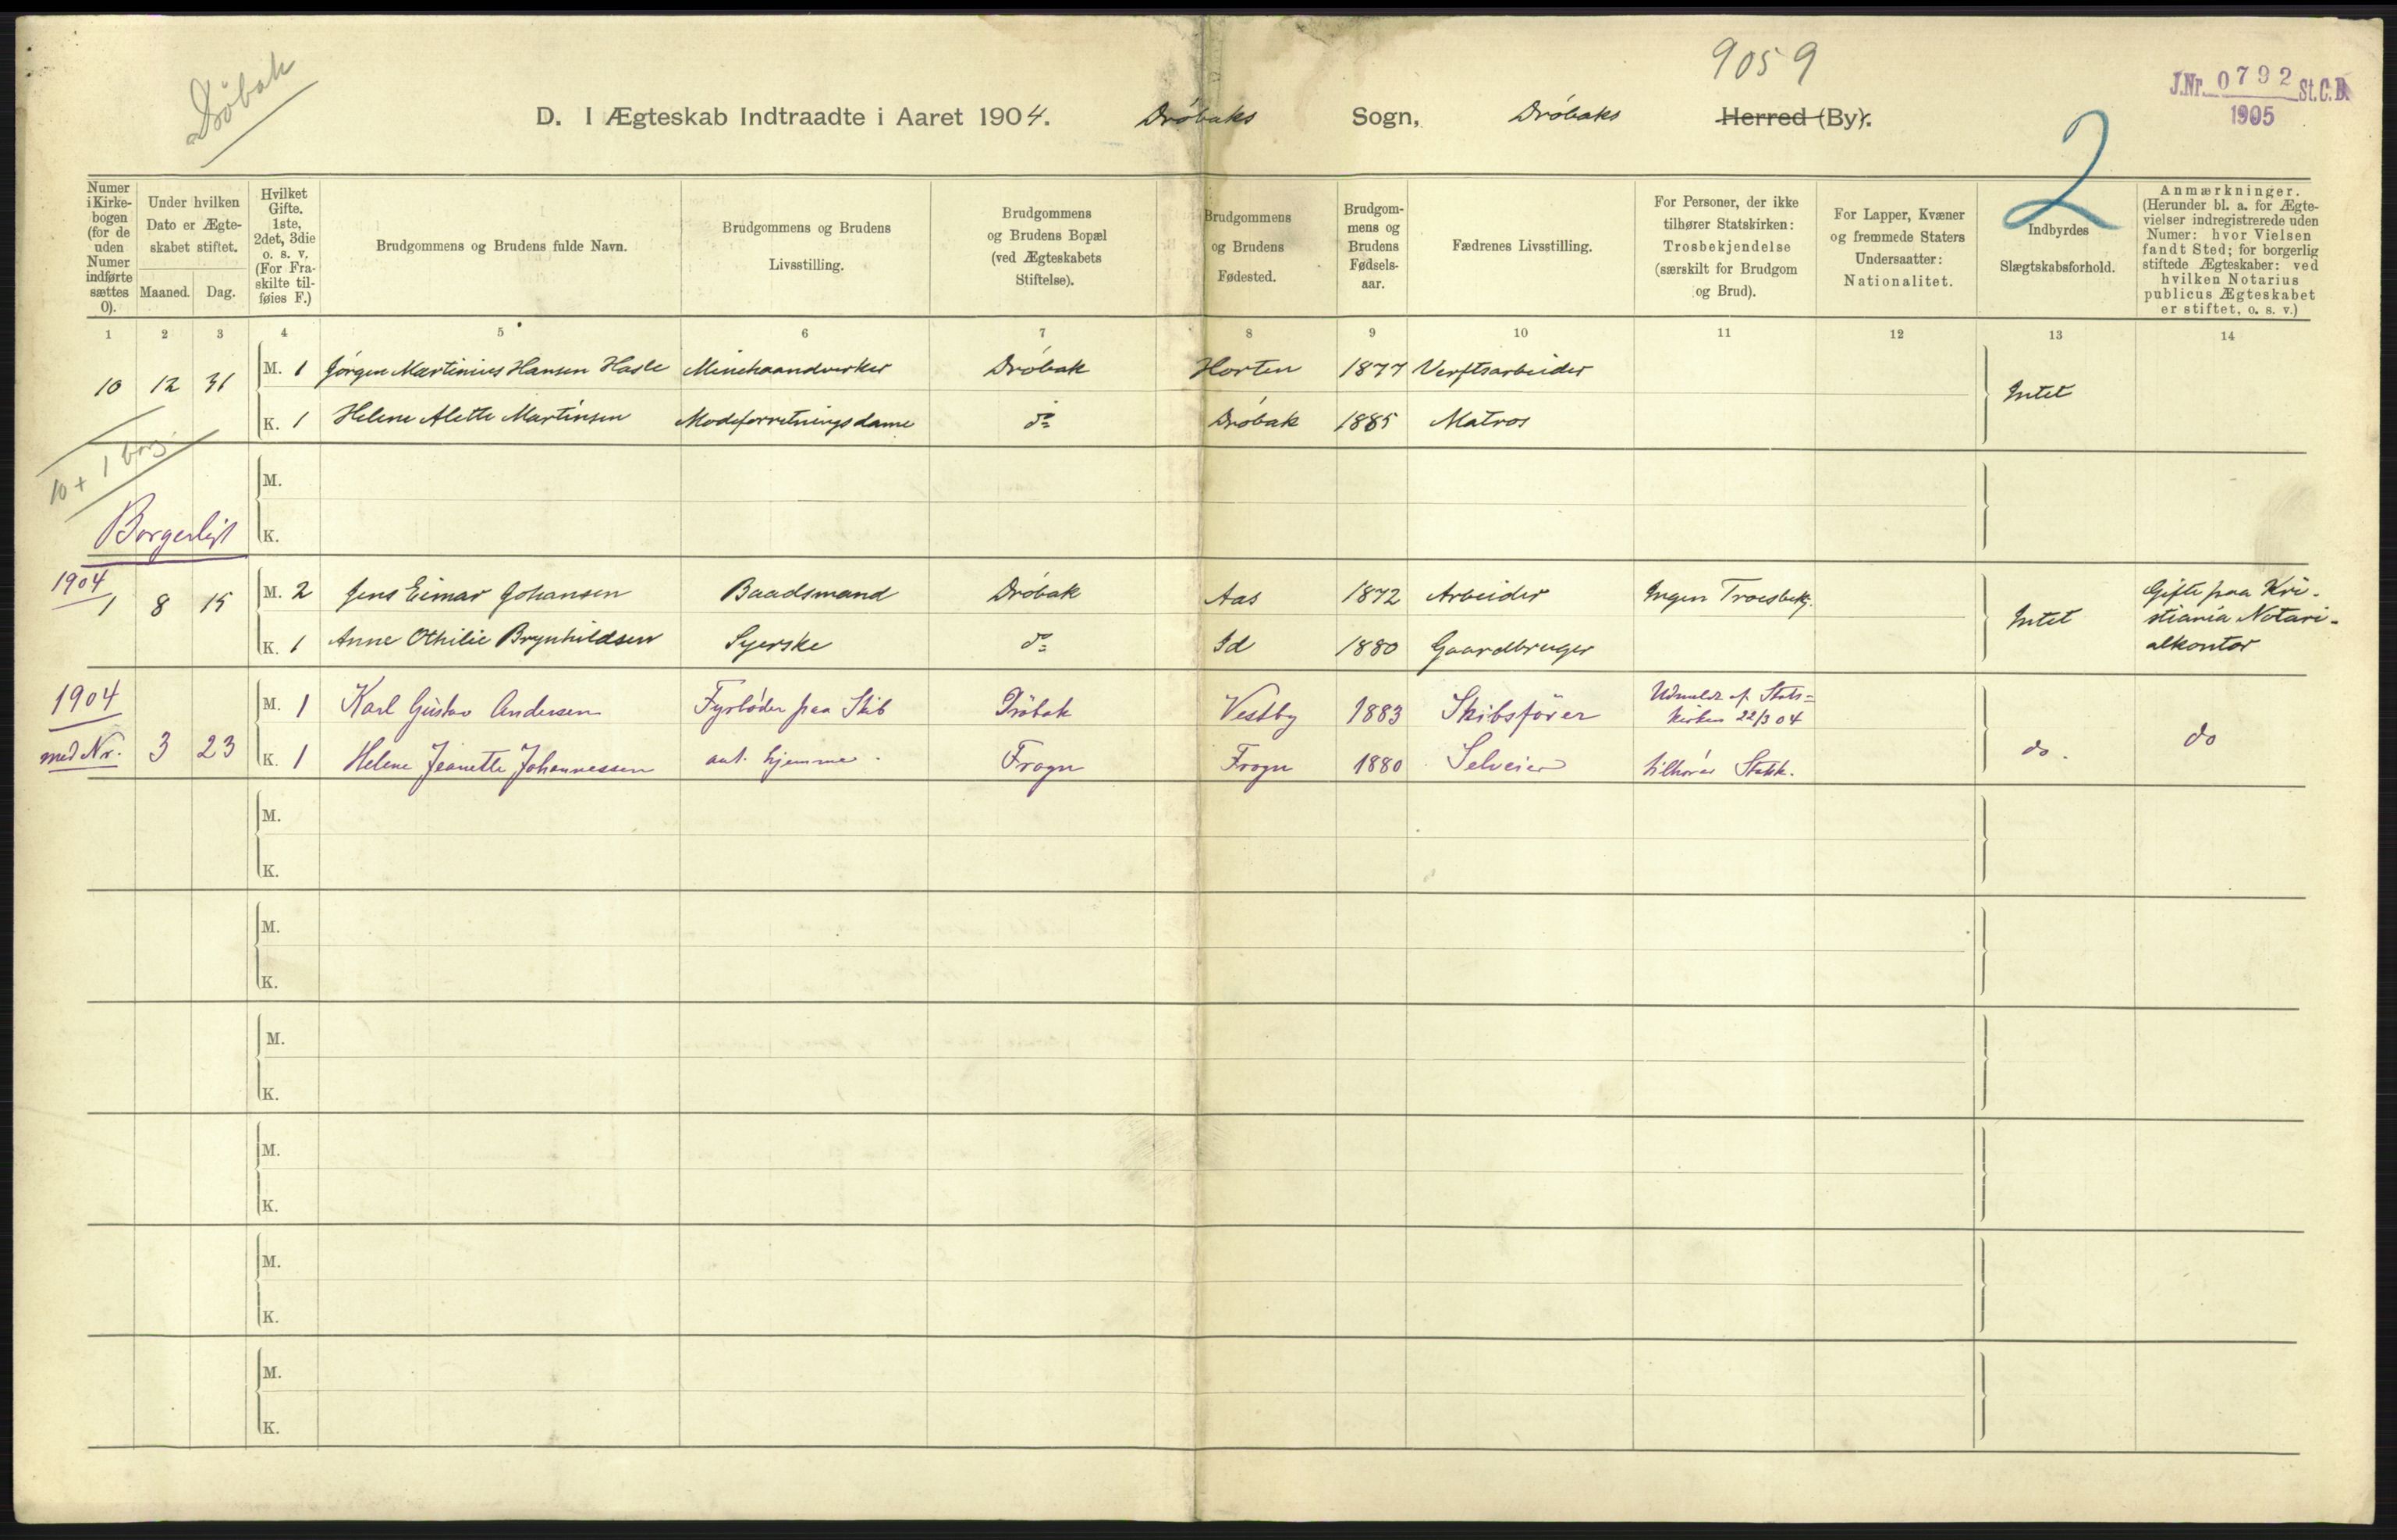 Drøbak
9059
J.Nr. 0792 St.C.B.
1905
D. I Ægteskab Indtraadte i Aaret 1904. Drøbaks Sogn, Drøbaks Herred (By).
2
Numer i Kirkebogen (for de uden Numer indførte sættes 0).
Under hvilken Dato er Ægteskabet stiftet.
Maaned. Dag.
Hvilket Gifte. 1ste, 2det, 3die o. s. v. (For Fraskilte tilføies F.)
Brudgommens og Brudens fulde Navn.
Brudgommens og Brudens Livsstilling.
Brudgommens og Brudens Bopæl (ved Ægteskabets Stiftelse).
Brudgommens og Brudens Fødested.
Brudgommens og Brudens Fødselsaar.
Fædrenes Livsstilling.
For Personer, der ikke tilhører Statskirken: Trosbekjendelse (særskilt for Brudgom og Brud).
For Lapper, Kvæner og fremmede Staters Undersaatter: Nationalitet.
Indbyrdes Slægtskabsforhold.
Anmærkninger. (Herunder bl. a. for Ægtevielser indregistrerede uden Numer: hvor Vielsen fandt Sted; for borgerlig stiftede Ægteskaber: ved hvilken Notarius publicus Ægteskabet er stiftet, o. s. v.)
1 2 3 4 5 6 7 8 9 10 11 12 13 14
10 12 31 M. 1 Jørgen Martinius Hansen Hasle Minehaandverker Drøbak Horten 1877 Verftsarbeider Intet
K. 1 Helene Alette Martinsen Modeforretningsdame do Drøbak 1885 Matros
10 + 1 borg.
M.
Borgerligt
K.
1904
1 8 15 M. 2 Jens Eimar Johansen Baadsmand Drøbak Aas 1872 Arbeider Ingen Troesbekj. Intet Gifte paa Kristiania Notarialkontor
K. 1 Anne Othilie Brynhildsen Syerske do Id 1880 Gaardbruger
1904
med Nr. 3 23 M. 1 Karl Gustav Andersen Fyrbøder paa Skib Drøbak Vestby 1883 Skibsfører Udmeldt af Statskirken 22/3 04 do. do
K. 1 Helene Jeanette Johannessen hjemme. Frogn Frogn 1880 Selveier tilhører Statsk.
M.
K.
M.
K.
M.
K.
M.
K.
M.
K.
M.
K.